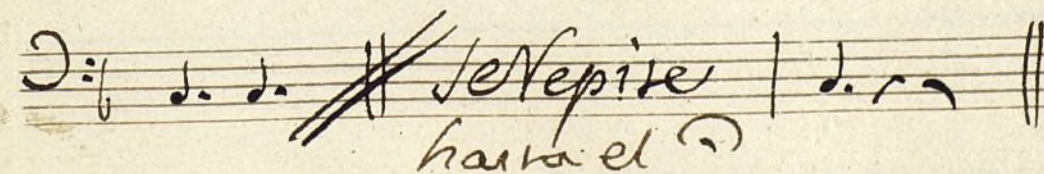 se Repite
hasta el